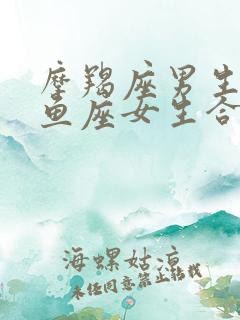 摩羯座男生
鱼座女生合
海螺姑凉
未经同意禁止转载